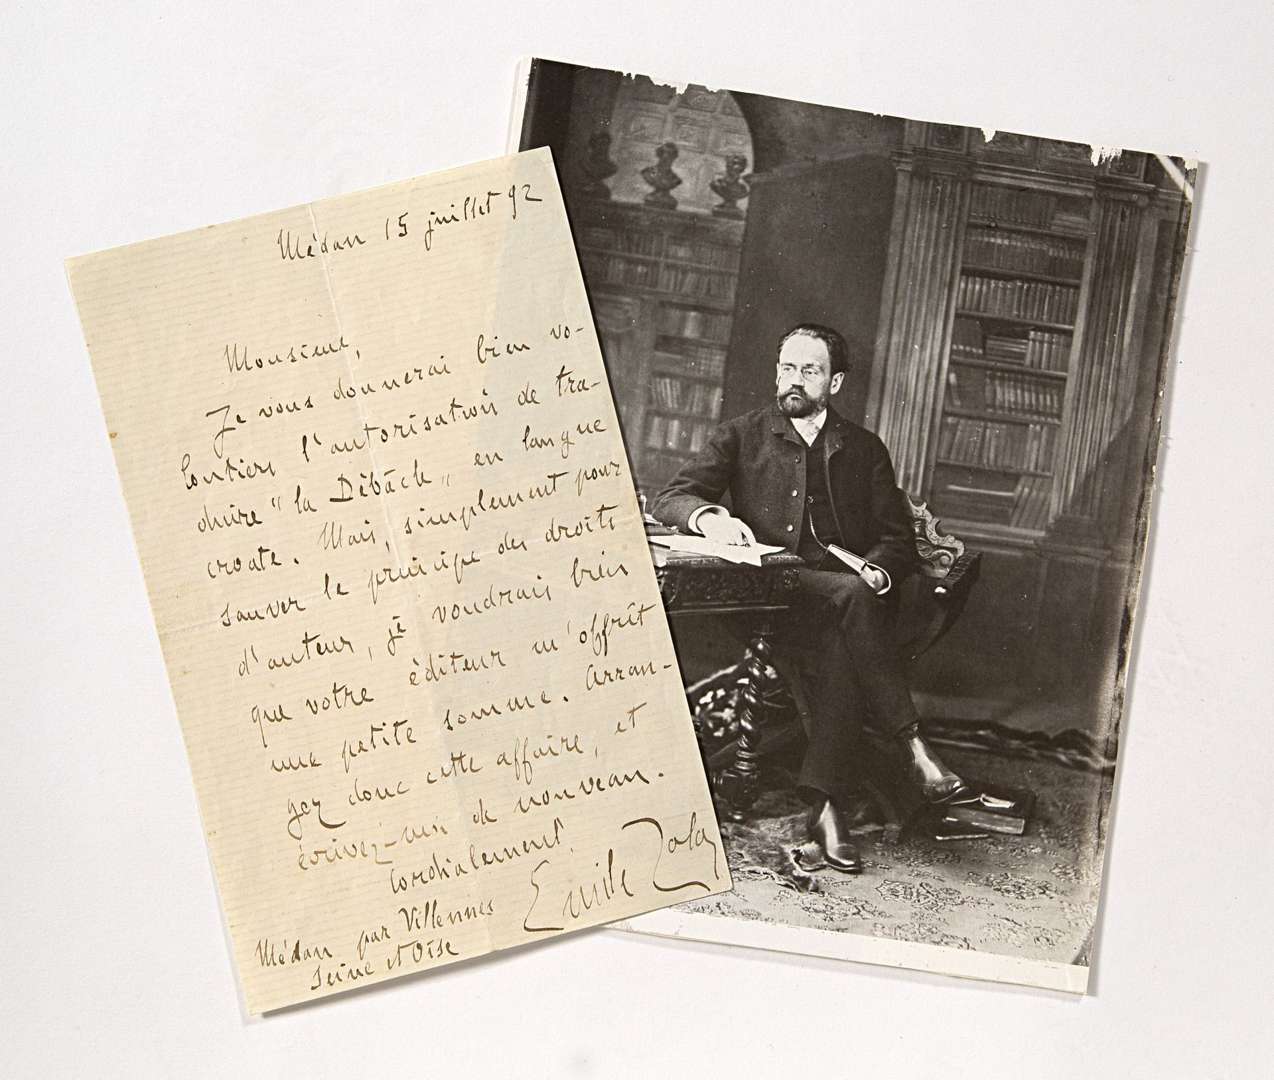 Médan 15 juillet 92
Monsieur,
Je vous donnerai bien vo-
lontiers l'autorisation de tra-
duire "la Débâcle" en langue
croate. Mais, simplement pour
sauver le principe des droits
d'auteur, je voudrais bien
que votre éditeur m'offrît
une petite somme. Arran-
gez donc cette affaire, et
écrivez-moi de nouveau.
Cordialement.
Emile Zola
Médan par Villennes
Seine et Oise